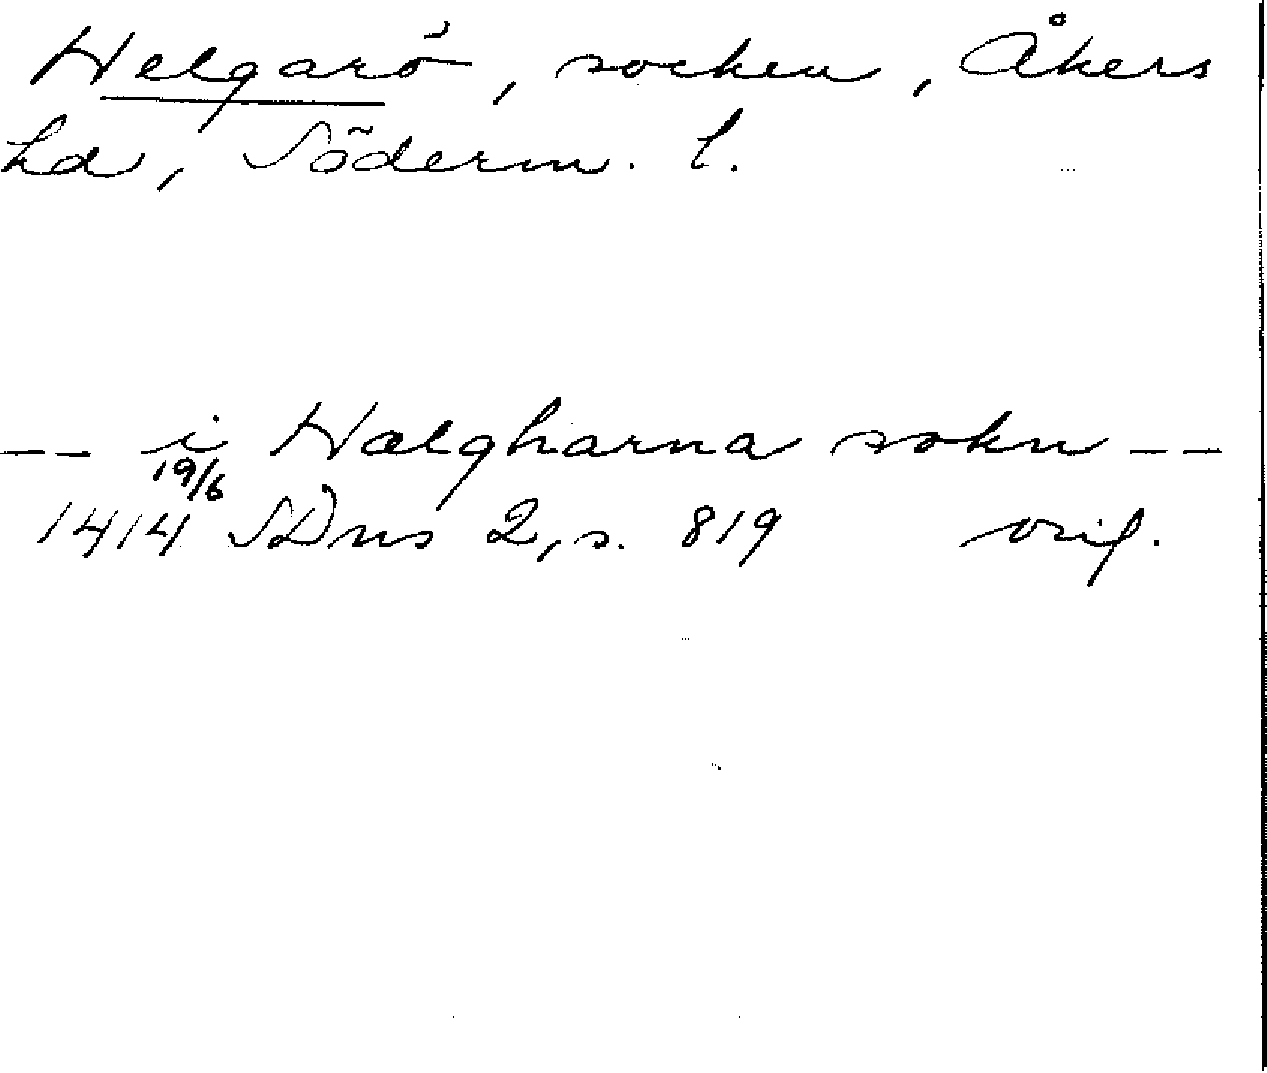 Helgarö, socken, Åkers
hd, Söderm. l.
-- i Hælgharna sokn --
19/6
1414 SDns 2, s. 819 orig.